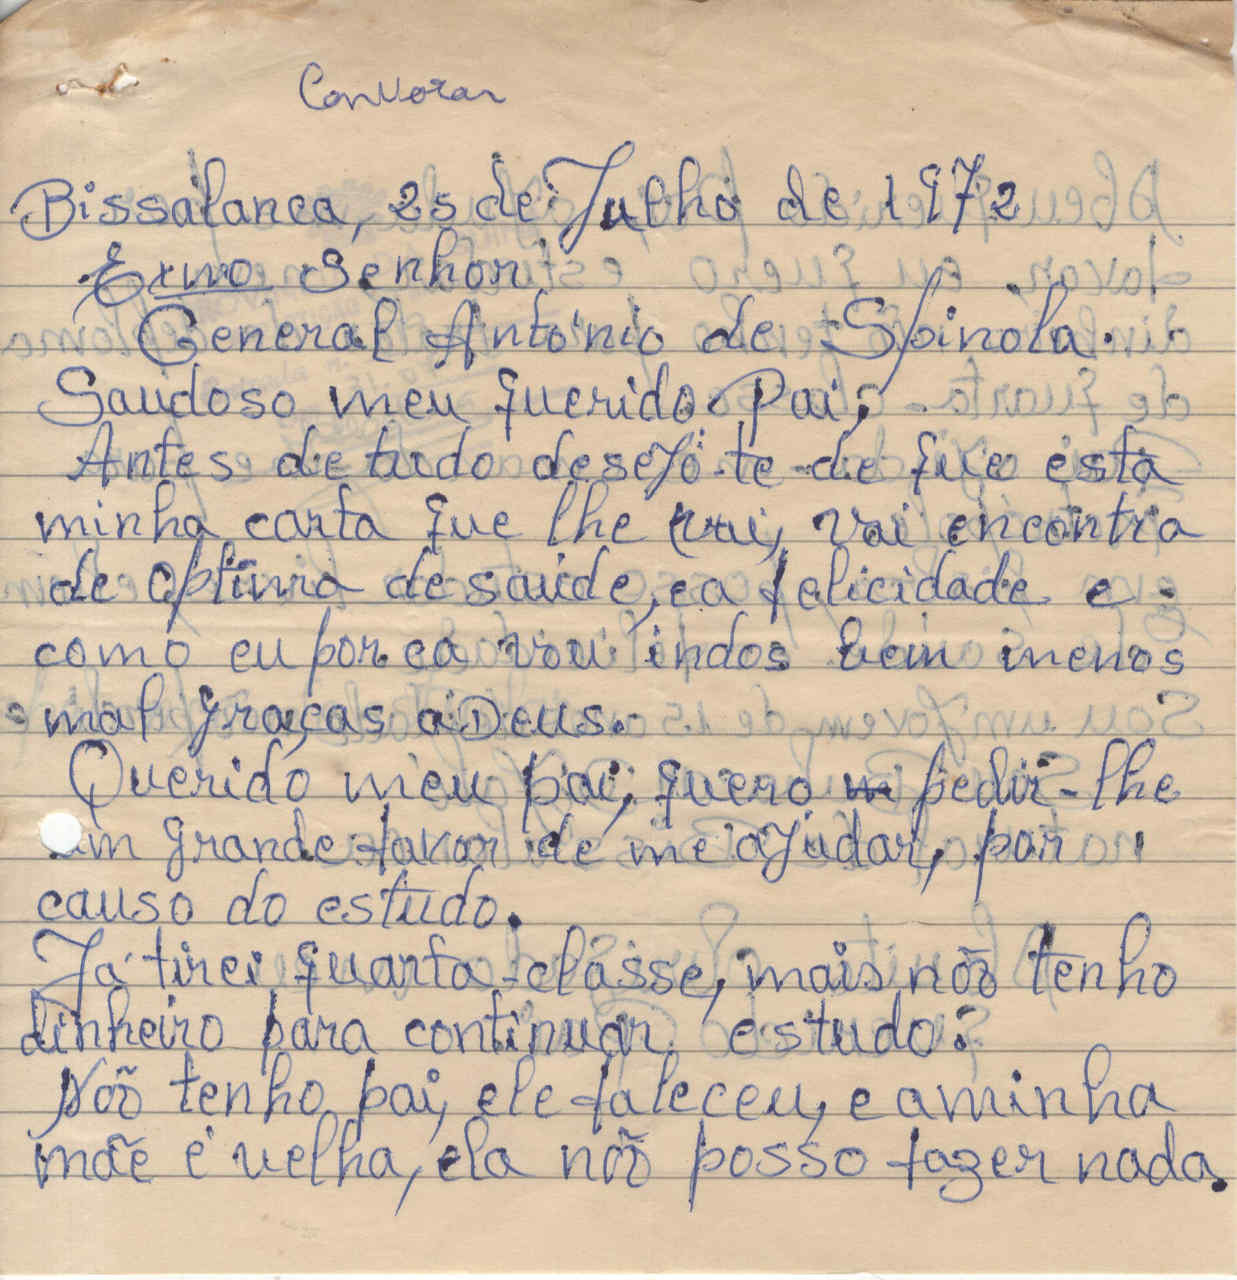 Convocar
Bissalanca, 25 de Julho de 1972
Exmo Senhor
General António de Spinola.
Saudoso meu querido Pai,
Antes de tudo desejo-te-de que esta
minha carta que lhe vai, vai encontra
de optima de saúde, e a felicidade e
como eu por ca vou indos bem menos
mal graças a Deus.
Querido meu pai, quero pedir-lhe
um grande favor de me ajudar, por
causo do estudo.
Já tirei quarta-classe, mais nõo tenho
dinheiro para continuar estudo?
Nõo tenho pai, ele faleceu, e a minha
mãe é velha, ela nõo posso fazer nada.